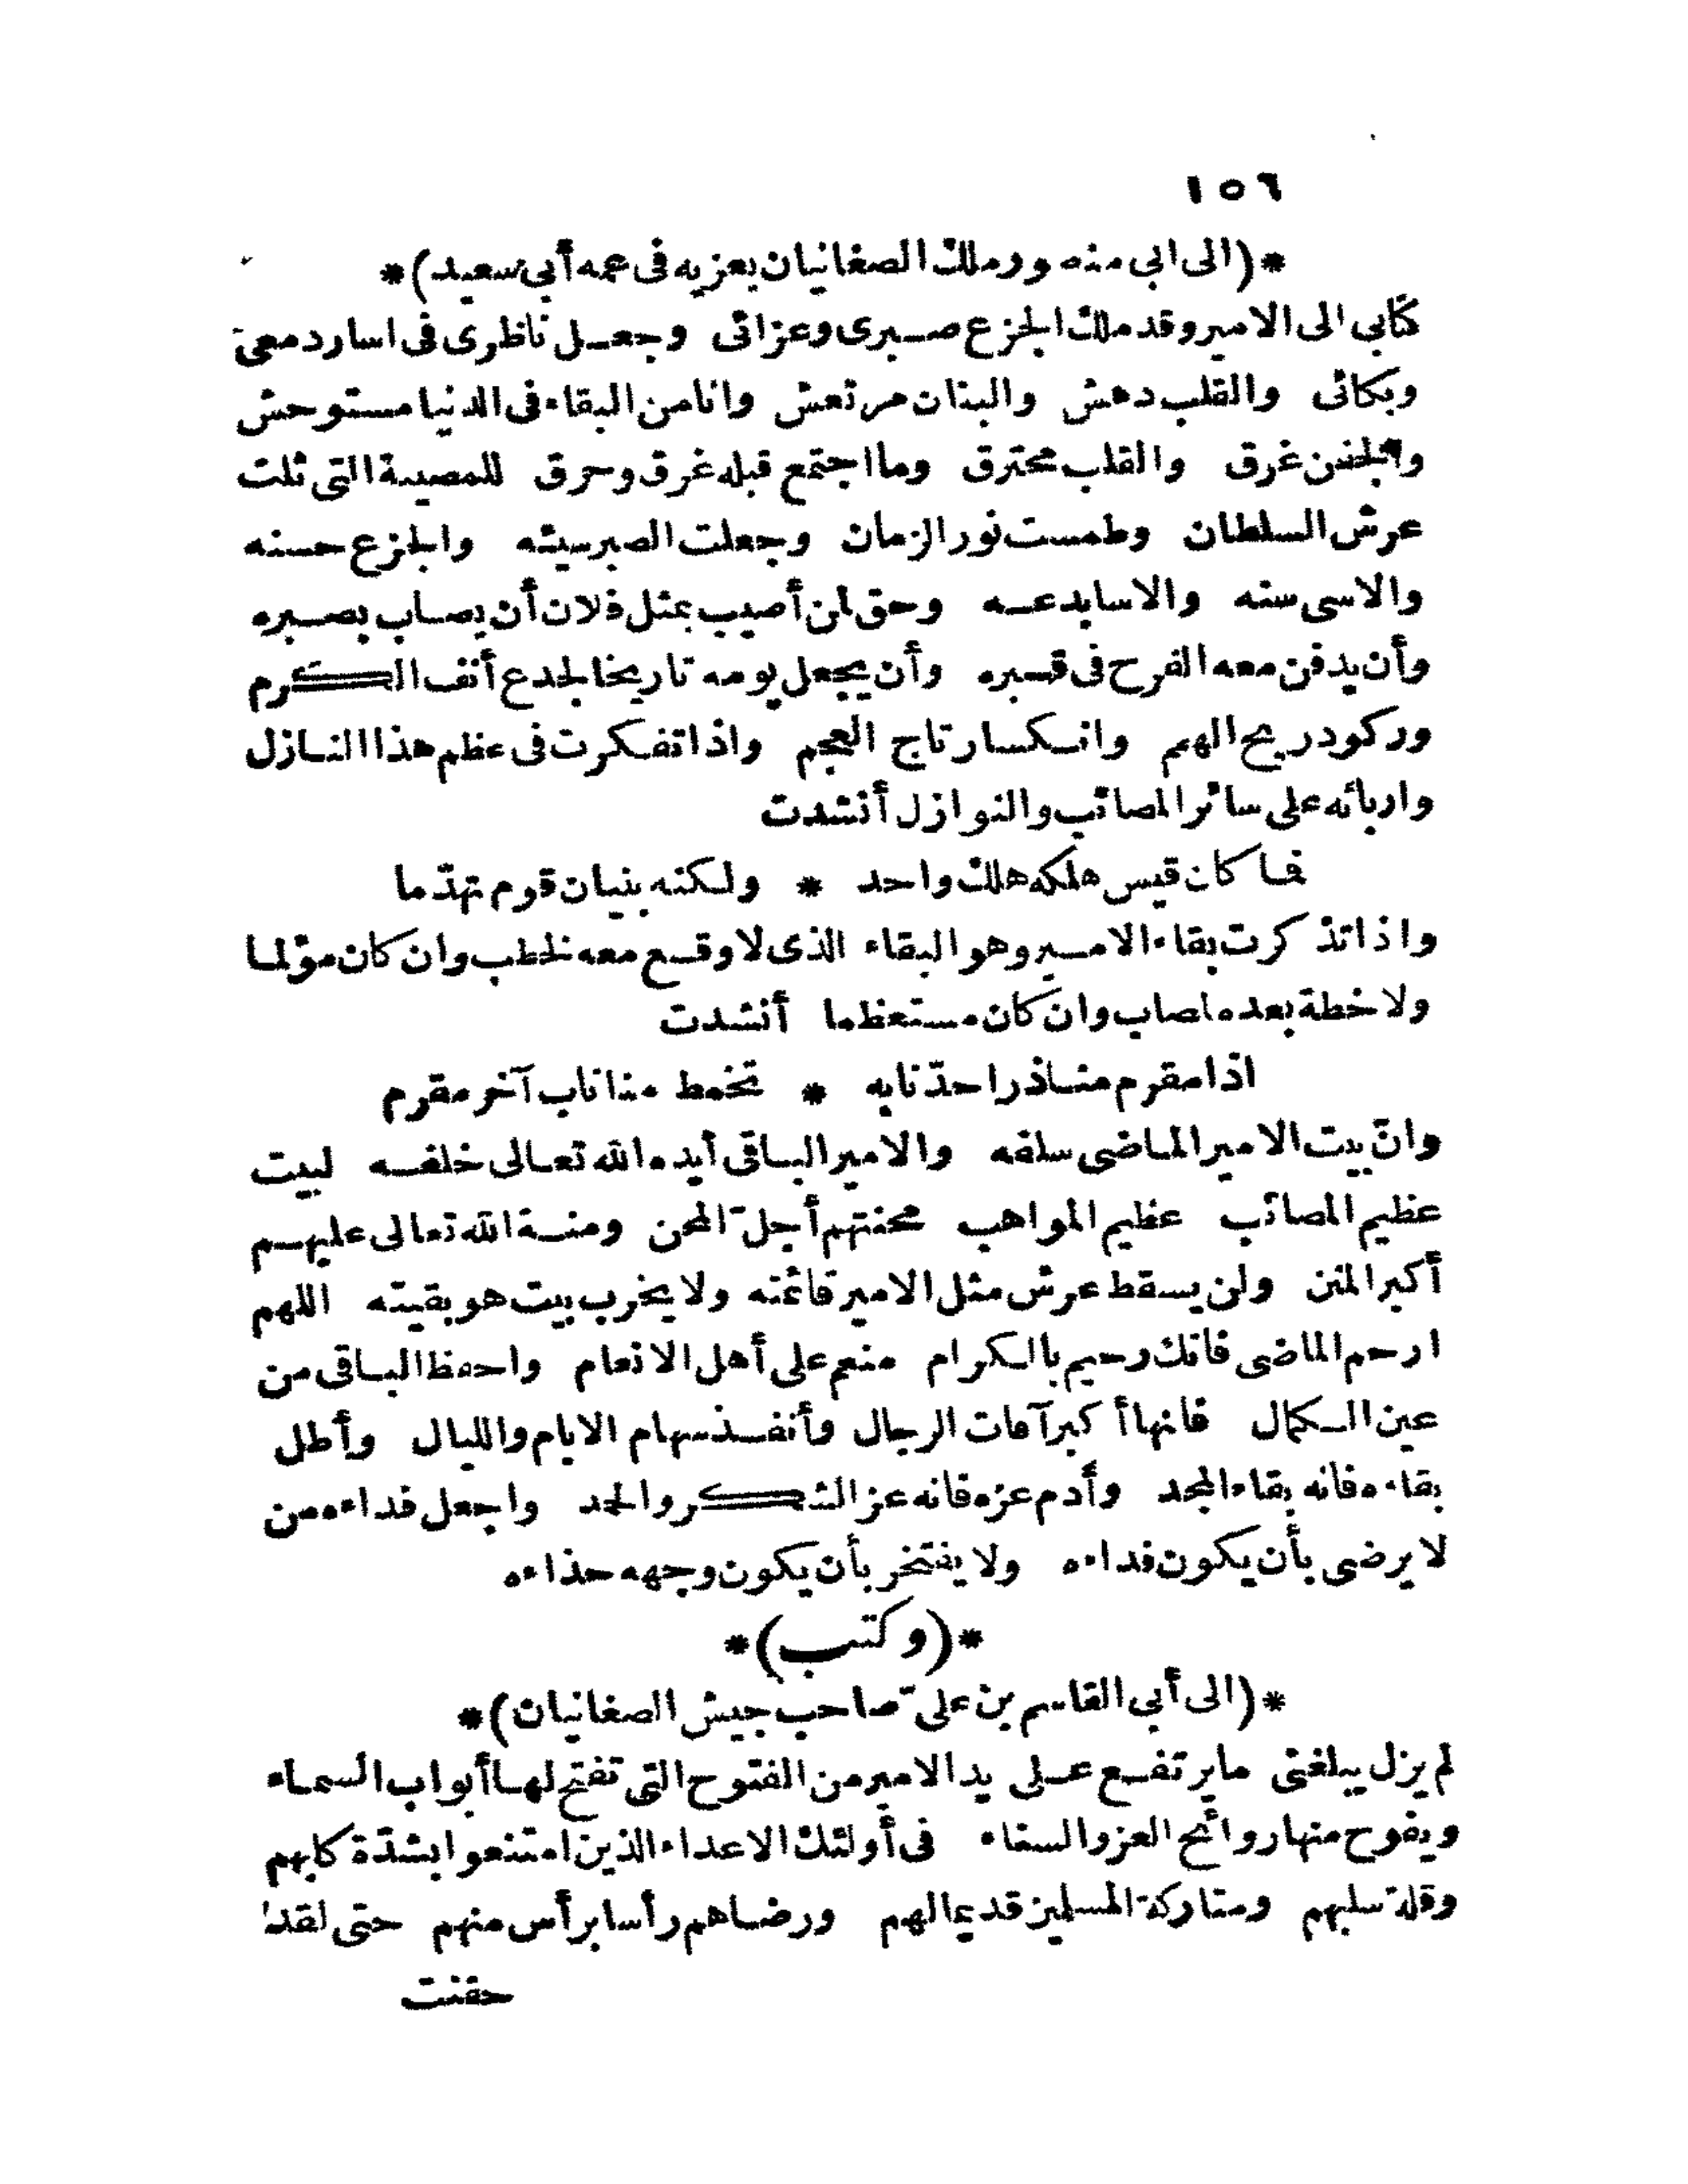 ١٥٦
*(الى ابي منصور ملك الصغانيان يعزيه فى عمه أبي سعيد)*
كتابي الى الامير وقد ملك الجزع صبرى وعزائى وجعل ناظرى فى اسار دمعى
وبكائى والقلب دهش والبنان مرتعش وانا من البقاء فى الدنيا مستوحش
والجفن غرق والقلب محترق وما اجتمع قبله غرق وحرق للمصيبة التى ثلت
عرش السلطان وطمست نور الزمان وجعلت الصبر سيئه والجزع حسنه
والاسى سنه والاسا بدعه وحق لمن أصيب بمثل فلان أن يصاب بصبره
وأن يدفن معه الفرح فى قبره وأن يجعل يومه تاريخا لجدع أنف الكرم
وركود ريح الهمم وانكسار تاج العجم واذا تفكرت فى عظم هذا النازل
واربائه على سائر المصائب والنوازل أنشدت
فما كان قيس هلكه هلك واحد * ولكنه بنيان قوم تهدّما
واذا تذكرت بقاء الامير وهو البقاء الذى لا وقع معه لخطب وان كان مؤلما
ولا خطة بعده لمصاب وان كان مستعظما أنشدت
اذا مقرم منا ذرا حدّ نابه * تخمط منا ناب آخر مقرم
وانّ بيت الامير الماضى سلفه والامير الباقى أيده الله تعالى خلفه لبيت
عظيم المصائب عظيم المواهب محنتهم أجلّ المحن ومنة الله تعالى عليهم
أكبر المنن ولن يسقط عرش مثل الامير قائمته ولا يخرب بيت هو بقيته اللهم
ارحم الماضى فانك رحيم بالكرام منعم على أهل الانعام واحفظ الباقى من
عين الكمال فانها أكبر آفات الرجال وأنفذ سهام الايام والليال وأطل
بقاءه فانه بقاء المجد وأدم عزه فانه عز الشكر والحمد واجعل فداءه من
لا يرضى بأن يكون فداءه ولا يفتخر بأن يكون وجهه حذاءه
*(وكتب)*
*(الى أبي القاسم بن علىّ صاحب جيش الصغانيان)*
لم يزل يبلغنى ما يرتفع على يد الامير من الفتوح التى تفتح لها أبواب السماء
ويفوح منها روائح العز والسناء فى أولئك الاعداء الذين امتنعوا بشدّة كلبهم
وقلة سلبهم ومتاركة المسلمين قديما لهم ورضاهم رأسا برأس منهم حتى لقد
حقنت